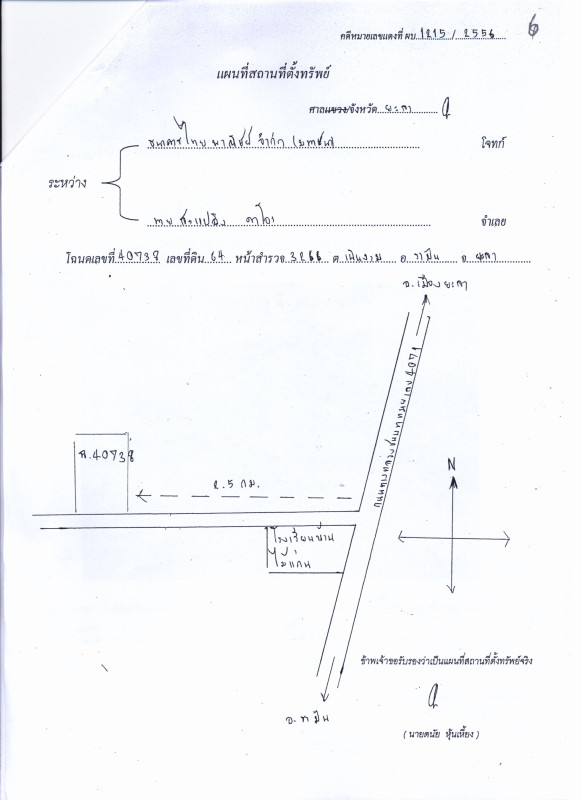 6
คดีหมายเลขแดงที่ ผบ.1215 / 2556
แผนที่สถานที่ตั้งทรัพย์
ศาลแขวง/จังหวัด ยะลา
ธนาคารไทยพาณิชย์ จำกัด (มหาชน) โจทก์
ระหว่าง
นาย จำเลย
โฉนดเลขที่ 40738 เลขที่ดิน 64 หน้าสำรวจ 3266 ต. เนินงาม อ. รามัน จ. ยะลา
อ.เมืองยะลา
ถนนทางหลวงชนบทหมายเลข 4071
ฉ.40738
2.5 กม.
N
โรงเรียนบ้าน
ไม้แก่น
อ.รามัน
ข้าพเจ้าขอรับรองว่าเป็นแผนที่สถานที่ตั้งทรัพย์จริง
(นายดนัย หุ้นเหี้ยง)